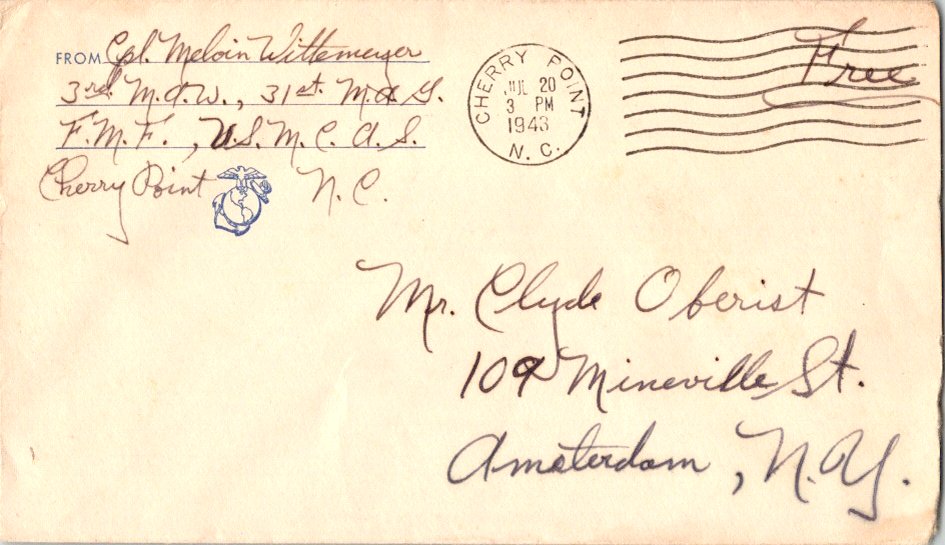 FROM Cpl. Melvin Wittemeyer
3rd M.A.W., 31st M.A.G.
F.M.F., U.S.M.C.A.S.
Cherry Point N.C.
CHERRY POINT
JUL 20
3 PM
1943
N. C.
Free
Mr. Clyde Oberist
109 Mineville St.
Amsterdam, N.Y.